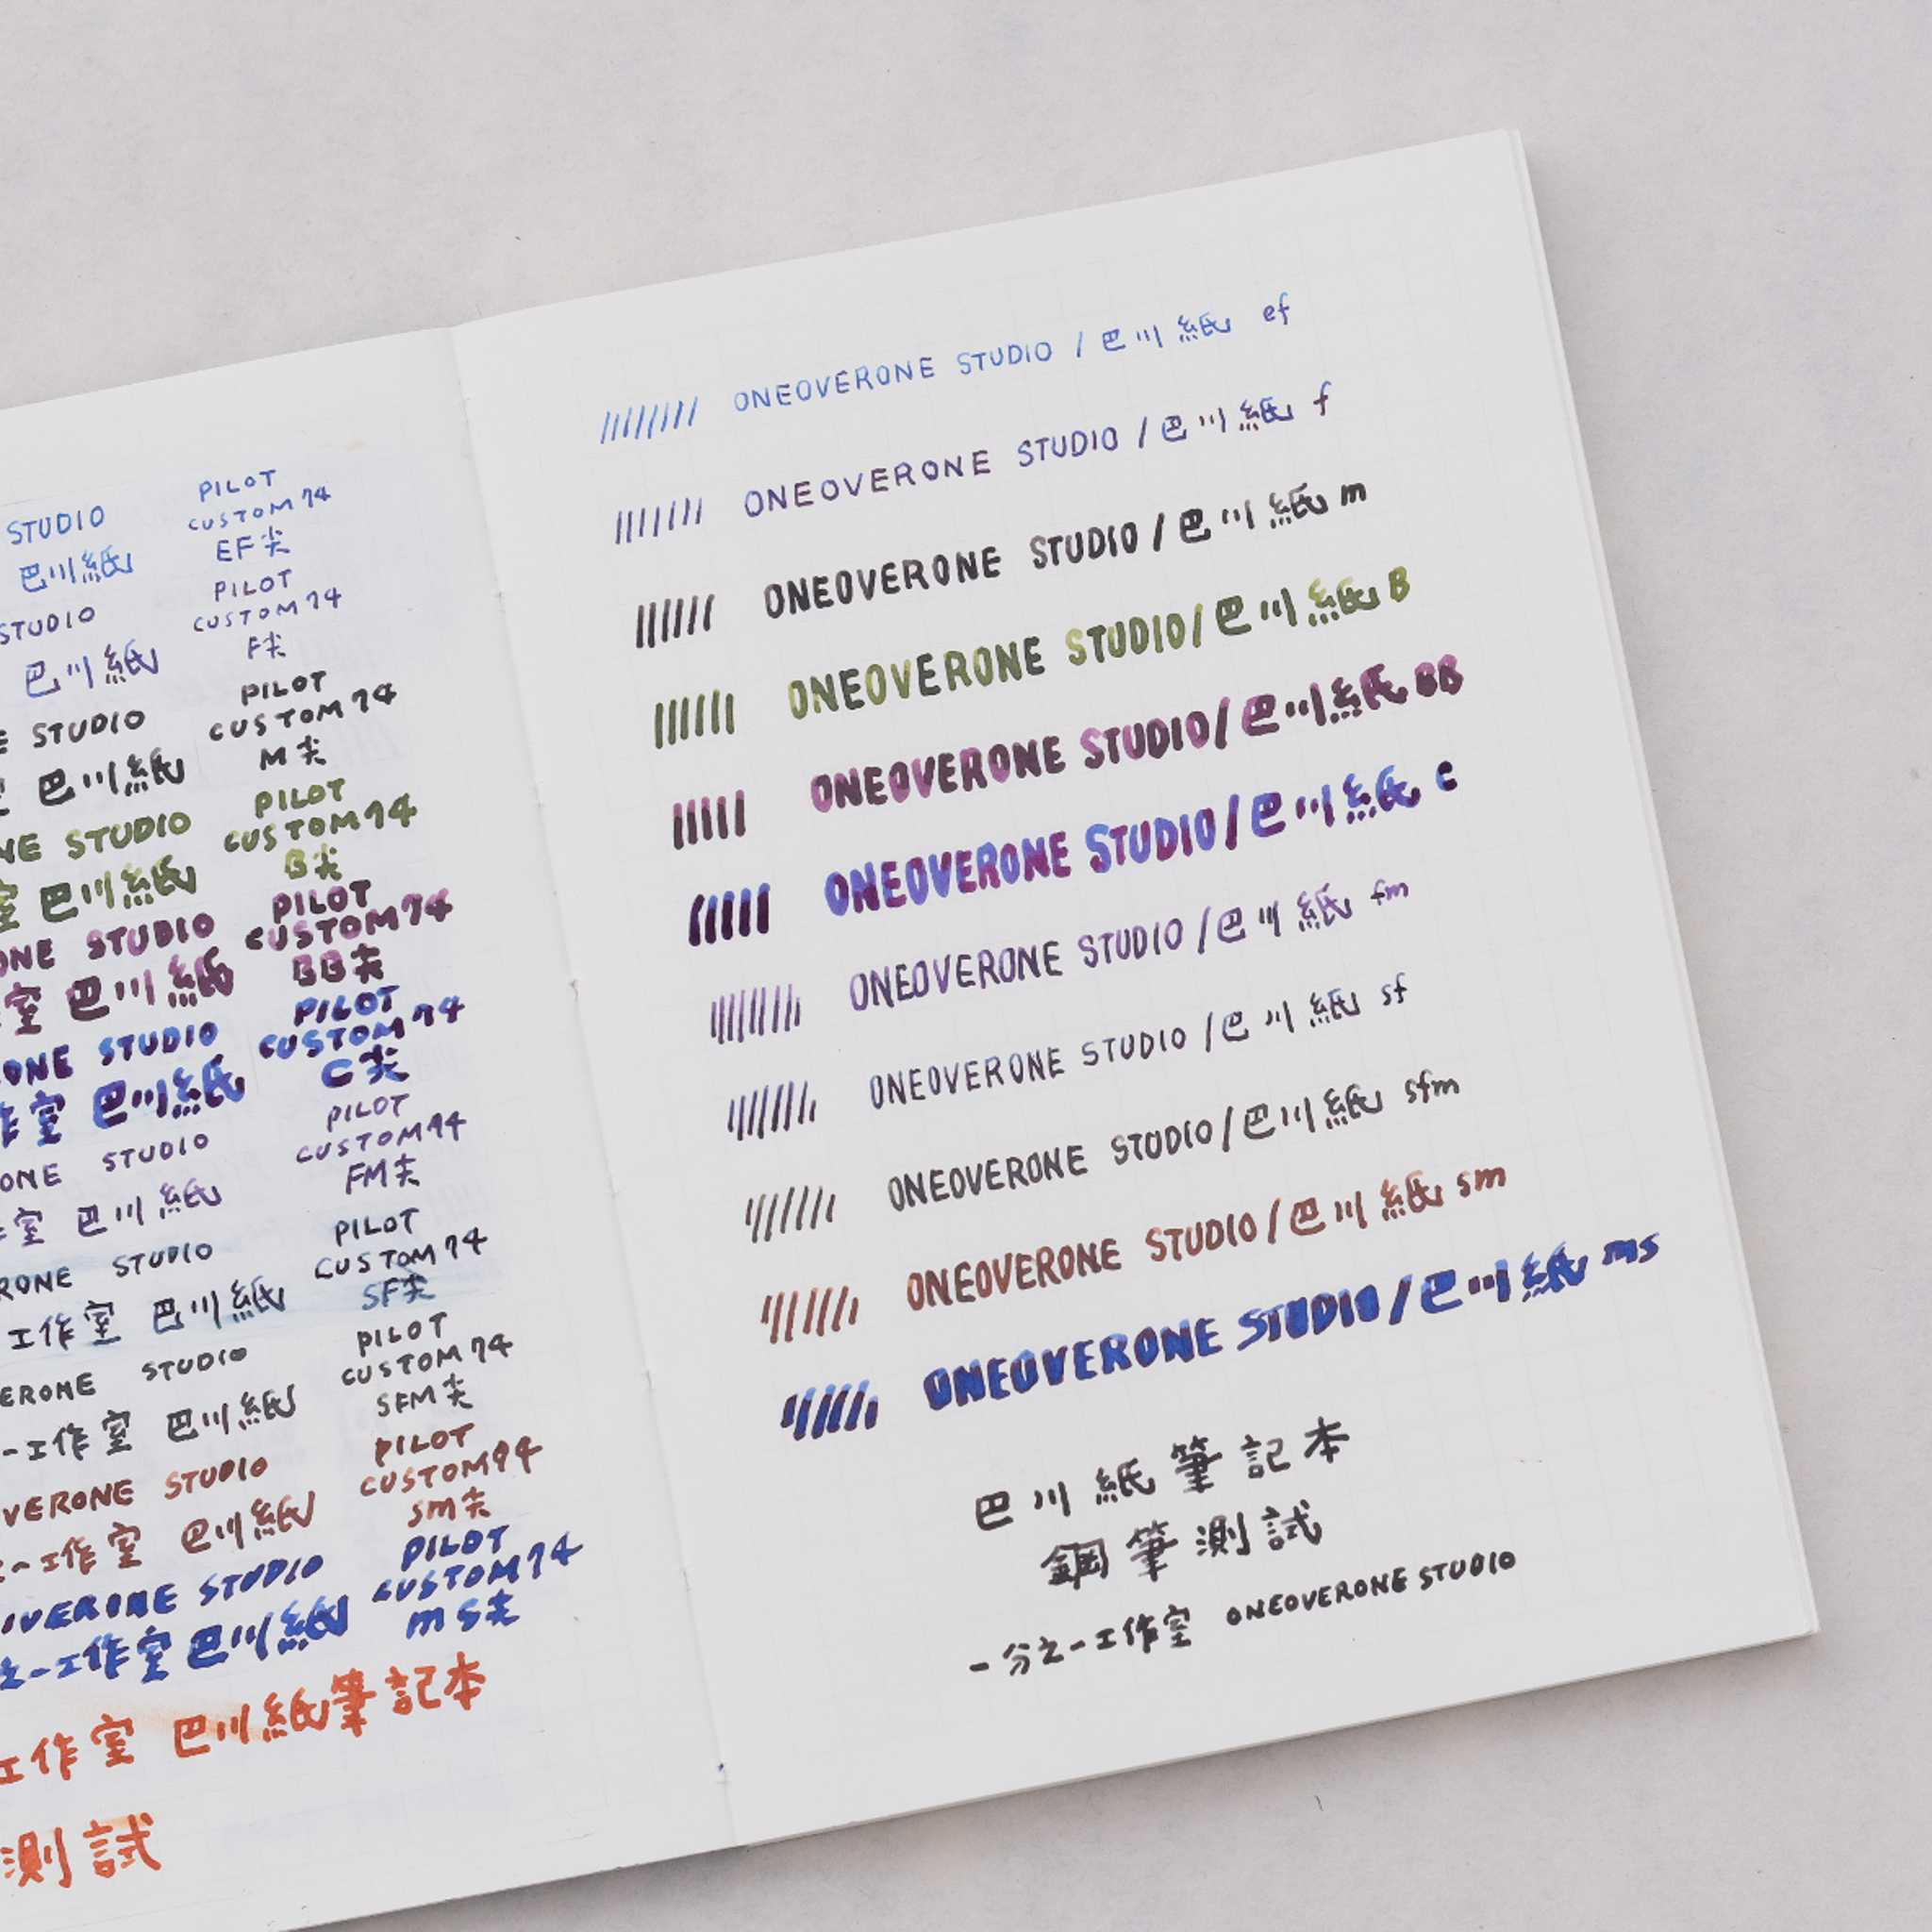 STUDIO PILOT
CUSTOM 74
巴川紙 EF尖
STUDIO PILOT
CUSTOM 74
巴川紙 F尖
STUDIO PILOT
CUSTOM 74
巴川紙 M尖
NE STUDIO PILOT
CUSTOM 74
室 巴川紙 B尖
ONE STUDIO PILOT
CUSTOM 74
室 巴川紙 BB尖
ONE STUDIO PILOT
CUSTOM 74
作室 巴川紙 C尖
ONE STUDIO PILOT
CUSTOM 74
室 巴川紙 FM尖
RONE STUDIO PILOT
CUSTOM 74
工作室 巴川紙 SF尖
ERONE STUDIO PILOT
CUSTOM 74
一工作室 巴川紙 SFM尖
VERONE STUDIO PILOT
CUSTOM 74
一工作室 巴川紙 SM尖
OVERONE STUDIO PILOT
CUSTOM 74
之一工作室 巴川紙 MS尖
工作室 巴川紙筆記本
測試
ONEOVERONE STUDIO / 巴川紙 ef
ONEOVERONE STUDIO / 巴川紙 f
ONEOVERONE STUDIO / 巴川紙 m
ONEOVERONE STUDIO / 巴川紙 B
ONEOVERONE STUDIO / 巴川紙 BB
ONEOVERONE STUDIO / 巴川紙 C
ONEOVERONE STUDIO / 巴川紙 fm
ONEOVERONE STUDIO / 巴川紙 sf
ONEOVERONE STUDIO / 巴川紙 sfm
ONEOVERONE STUDIO / 巴川紙 sm
ONEOVERONE STUDIO / 巴川紙 ms
巴川紙筆記本
鋼筆測試
一分之一工作室 ONEOVERONE STUDIO